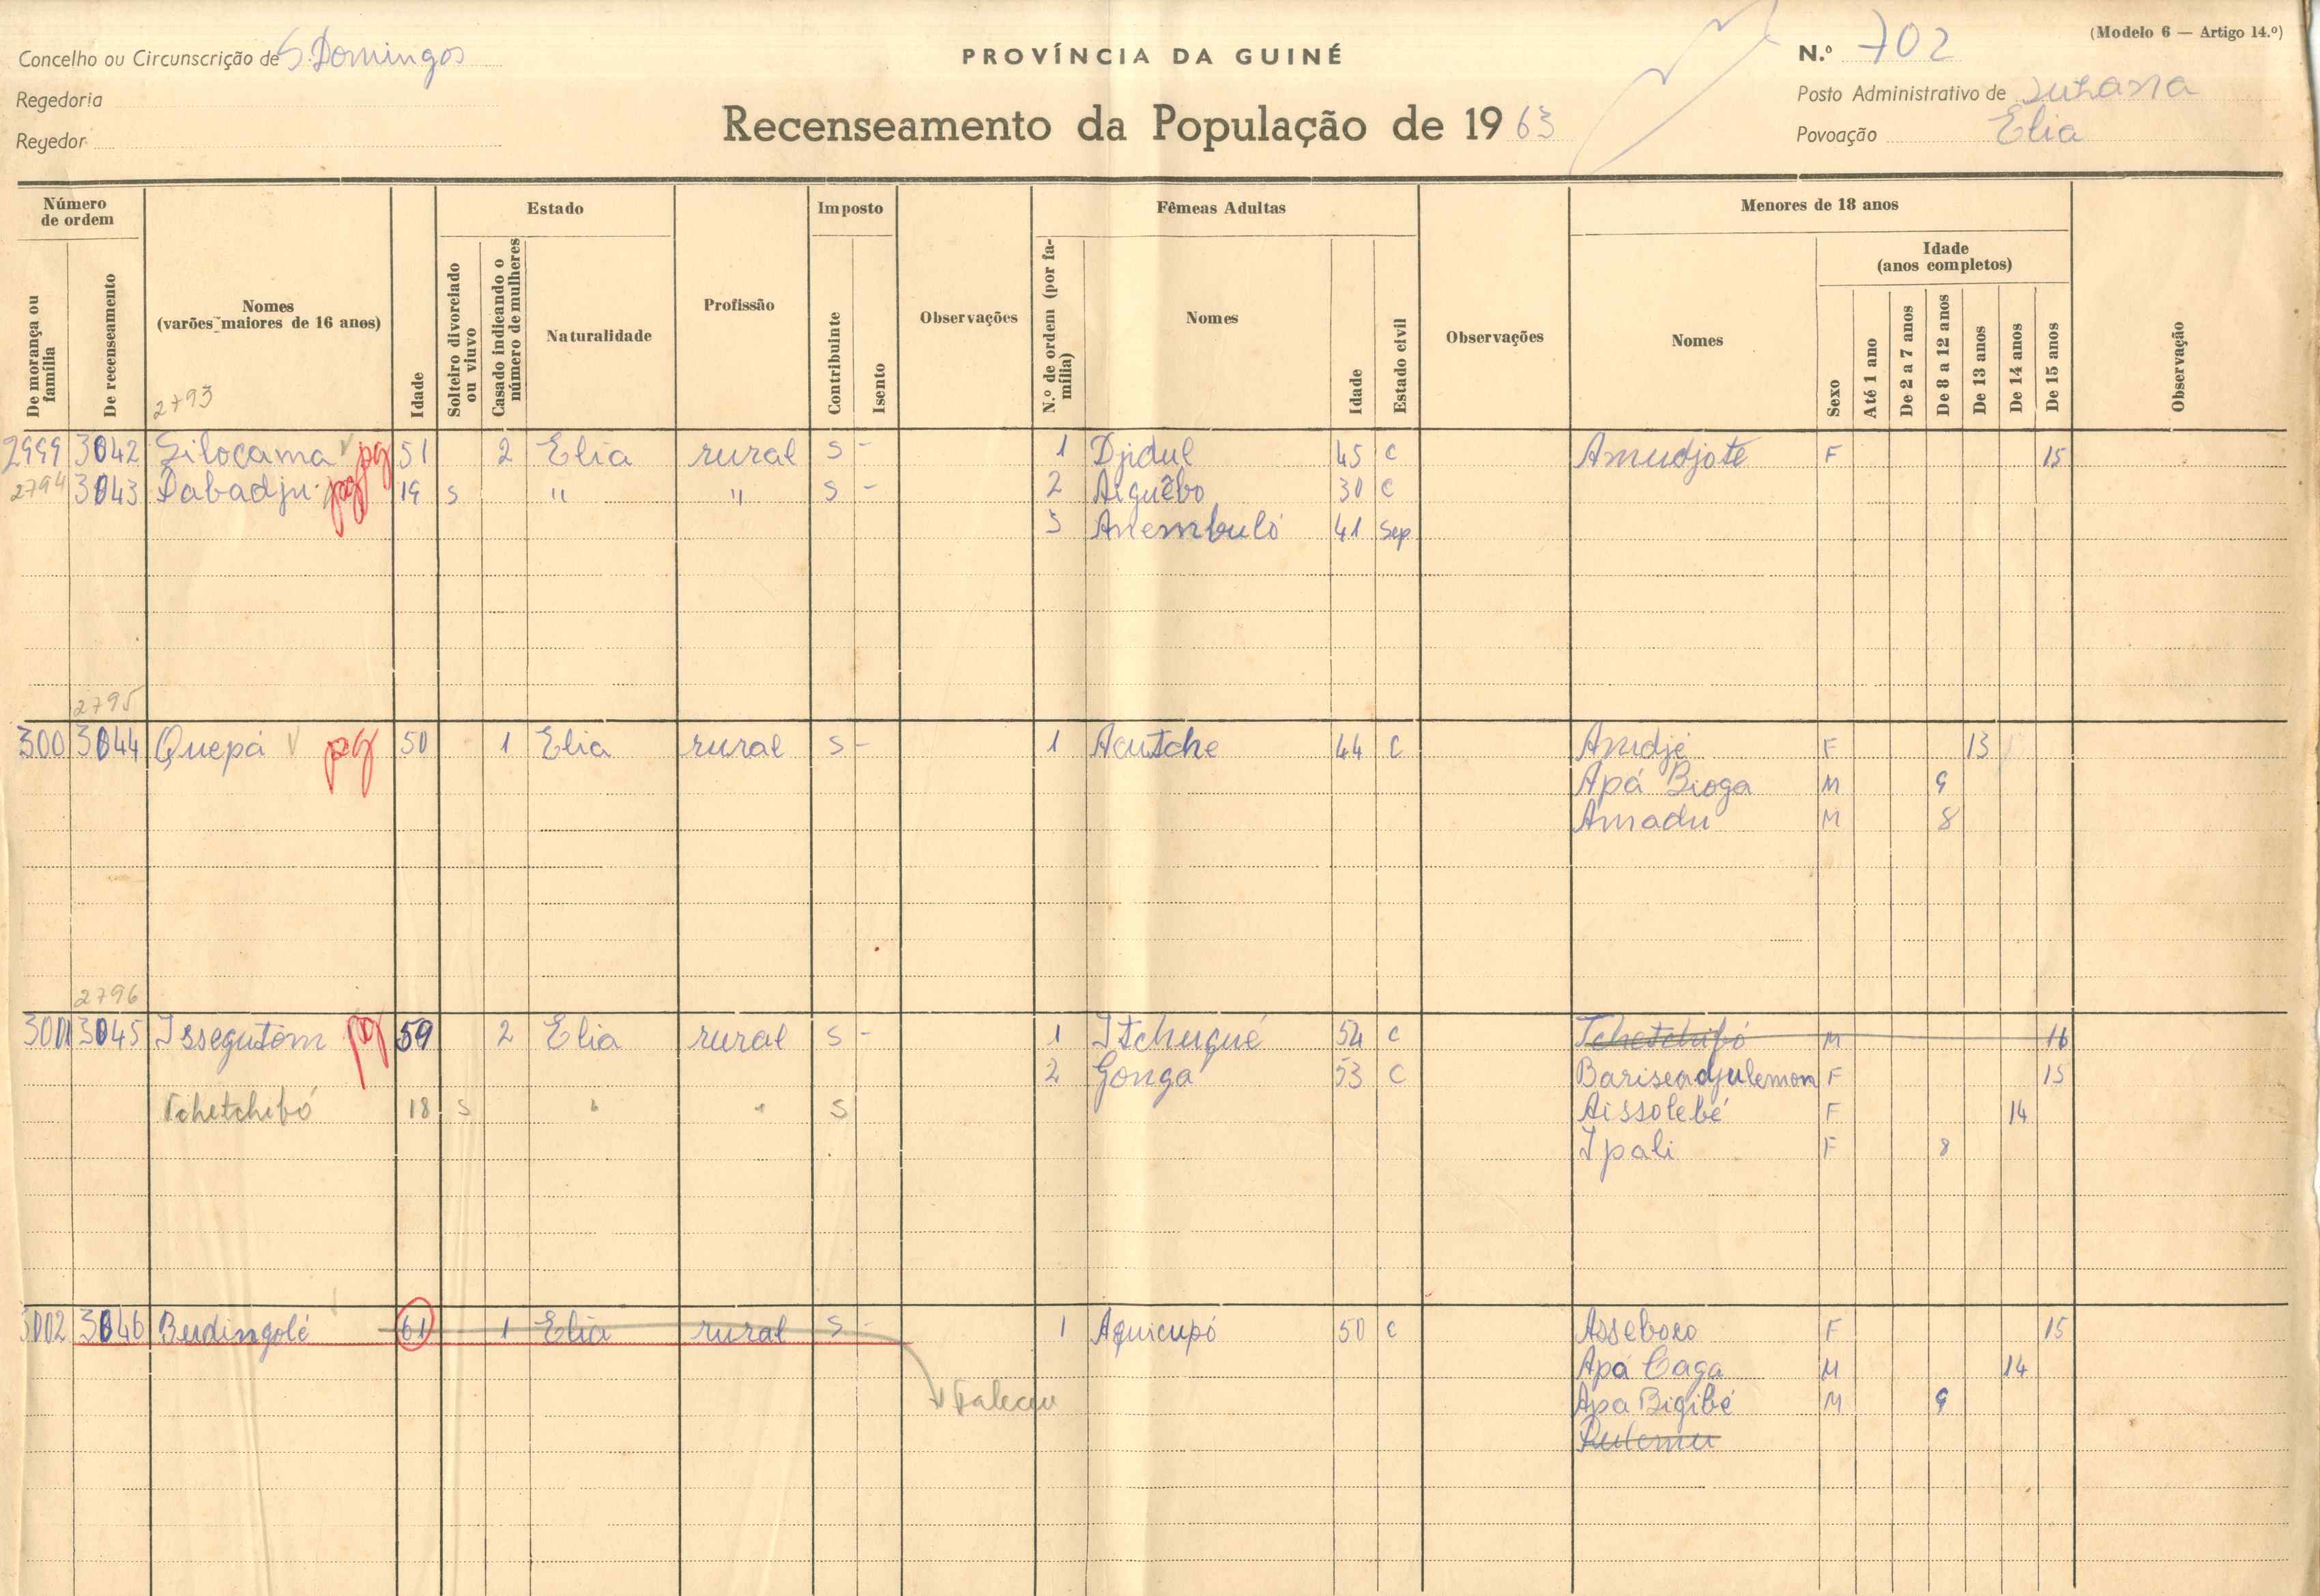 (Modelo 6 — Artigo 14.º)
Concelho ou Circunscrição de S. Domingos
PROVÍNCIA DA GUINÉ
N.º 702
Regedoria
Posto Administrativo de Suzana
Recenseamento da População de 1963
Regedor
Povoação Elia
Número de ordem
Estado
Imposto
Fêmeas Adultas
Menores de 18 anos
Idade (anos completos)
De morança ou família
De recenseamento
Nomes (varões maiores de 16 anos)
Idade
Solteiro divorciado ou viuvo
Casado indicando o número de mulheres
Naturalidade
Profissão
Contribuinte
Isento
Observações
N.º de ordem (por família)
Nomes
Idade
Estado civil
Observações
Nomes
Sexo
Até 1 ano
De 2 a 7 anos
De 8 a 12 anos
De 13 anos
De 14 anos
De 15 anos
Observação
2793
2999 3042 Silocama pg 51 2 Elia rural s - 1 Djidul 45 C Amudjote F 15
2794 3043 Pabadju pg 19 s " " s - 2 Aiguêbo 30 C
3 Anembuló 41 Sep
2795
300 3044 Quepá pg 50 1 Elia rural s - 1 Acutche 44 C Amdjé F 13
Apá Bioga M 9
Amadu M 8
2796
3001 3045 Issegutom pg 59 2 Elia rural s - 1 Itchuqué 54 C Tchetchibó M 16
2 Gonga 53 C Bariseadjulemon F 15
Tchetchibó 18 s " " s Aissolebé F 14
Ipali F 8
3002 3046 Budingolé 61 1 Elia rural s - 1 Aquicupó 50 C Asseboro F 15
Apá Caga M 14
Faleceu Apa Bigibé M 9